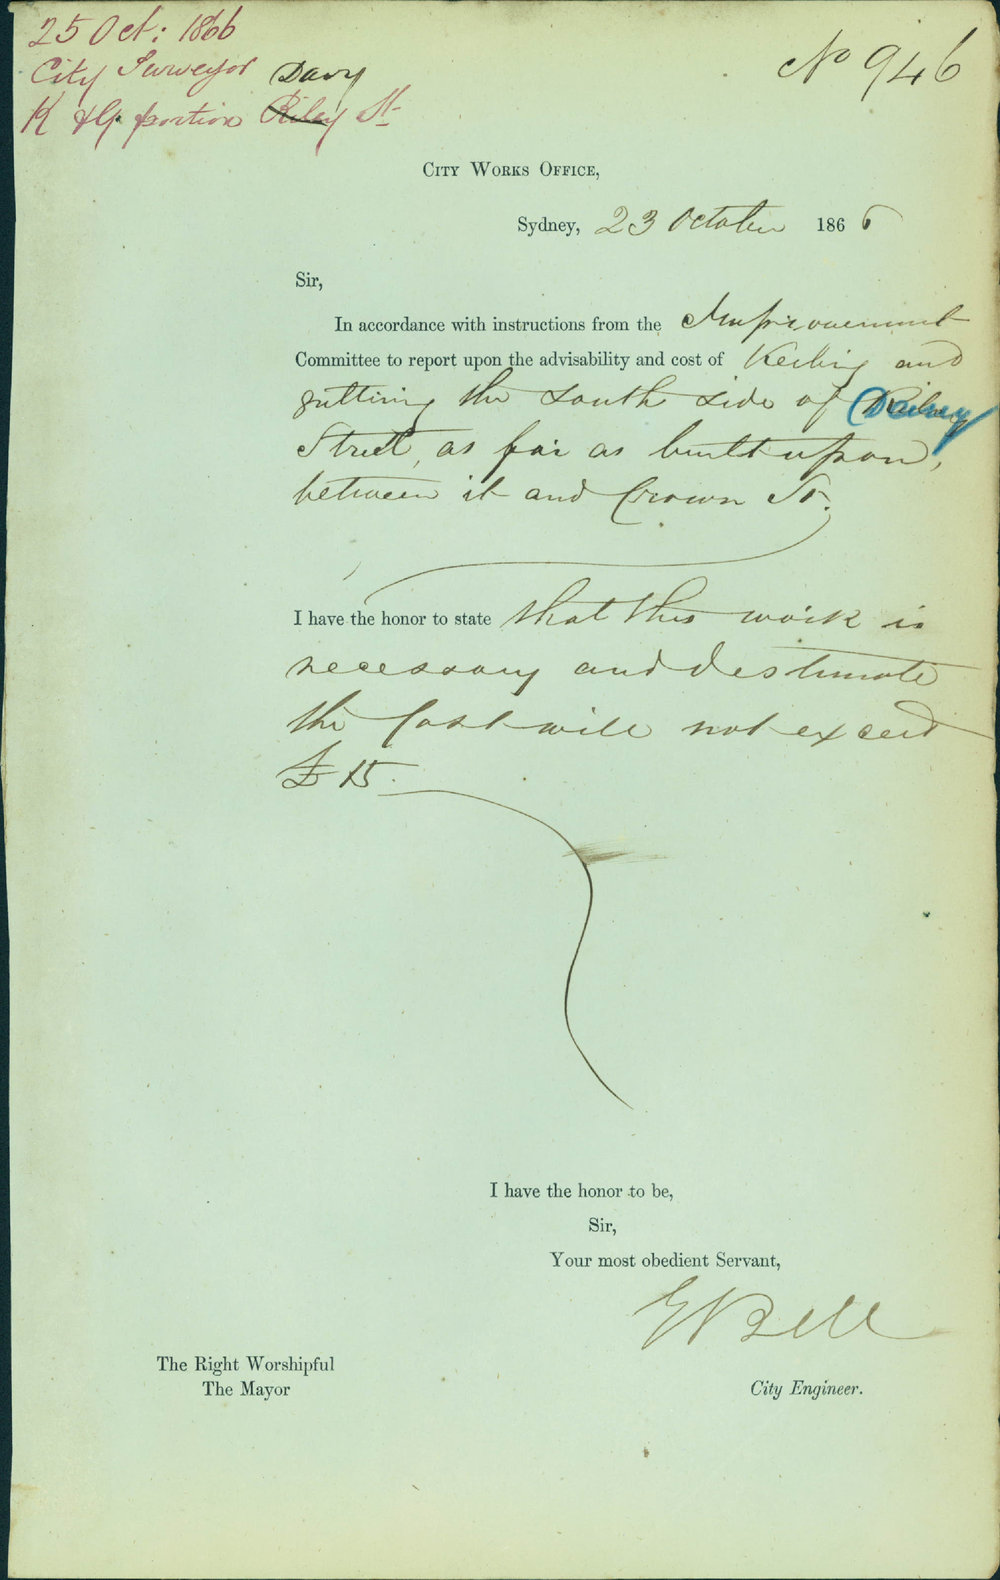 25 Oct: 1866
City Surveyor Davy
K & G. portion Riley St
No 946
City Works Office,
Sydney, 23 October 1866
Sir,
In accordance with instructions from the Improvement
Committee to report upon the advisability and cost of Kerbing and
guttering the south side of
Street, as far as built upon,
between it and Crown St.
I have the honor to state that this work is
necessary and I estimate
the Cost will not exceed
£15.
I have the honor to be,
Sir,
Your most obedient Servant,
E Bell
The Right Worshipful
The Mayor
City Engineer.